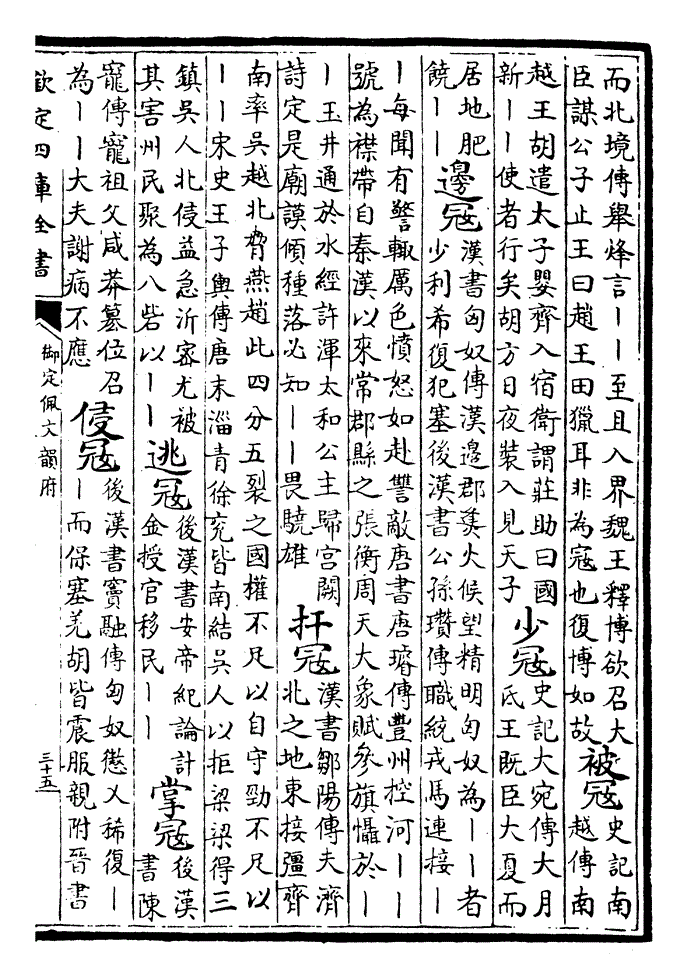 而北境傳舉烽言丨丨至且入界魏王釋博欲召大
臣謀公子止王曰趙王田獵耳非為寇也復博如故
被寇
史記南
越傳南
越王胡遣太子嬰齊入宿衛謂莊助曰國
新丨丨使者行矣胡方日夜裝入見天子
少寇
史記大宛傳大月
氏王既臣大夏而
居地肥
饒丨丨
邊寇
漢書匈奴傳漢邊郡㷭火候望精明匈奴為丨丨者
少利希復犯塞後漢書公孫瓚傳職統戎馬連接丨
丨每聞有警輒厲色憤怒如赴讐敵唐書唐璿傳豐州控河丨丨
號為襟帶自秦漢以來常郡縣之張衡周天大象賦參旗懾於丨
丨玉井通於水經許渾太和公主歸宫闕
詩定是廟謨傾種落必知丨丨畏驍雄
扞寇
漢書鄒陽傳夫濟
北之地東接彊齊
南牽吳越北脅燕趙此四分五裂之國權不足以自守勁不足以
丨丨宋史王子輿傳唐末淄青徐兖皆南結吳人以拒梁梁得三
鎮吳人北侵益急沂密尤被
其害州民聚為八砦以丨丨
逃寇
後漢書安帝紀論計
金授官移民丨丨
掌寇
後漢
書陳
寵傳寵祖父咸莽簒位召
為丨丨大夫謝病不應
侵寇
後漢書竇融傳匈奴懲乂稀復丨
丨而保塞羌胡皆震服親附晉書
欽定四庫全書
御定佩文韻府
三十五